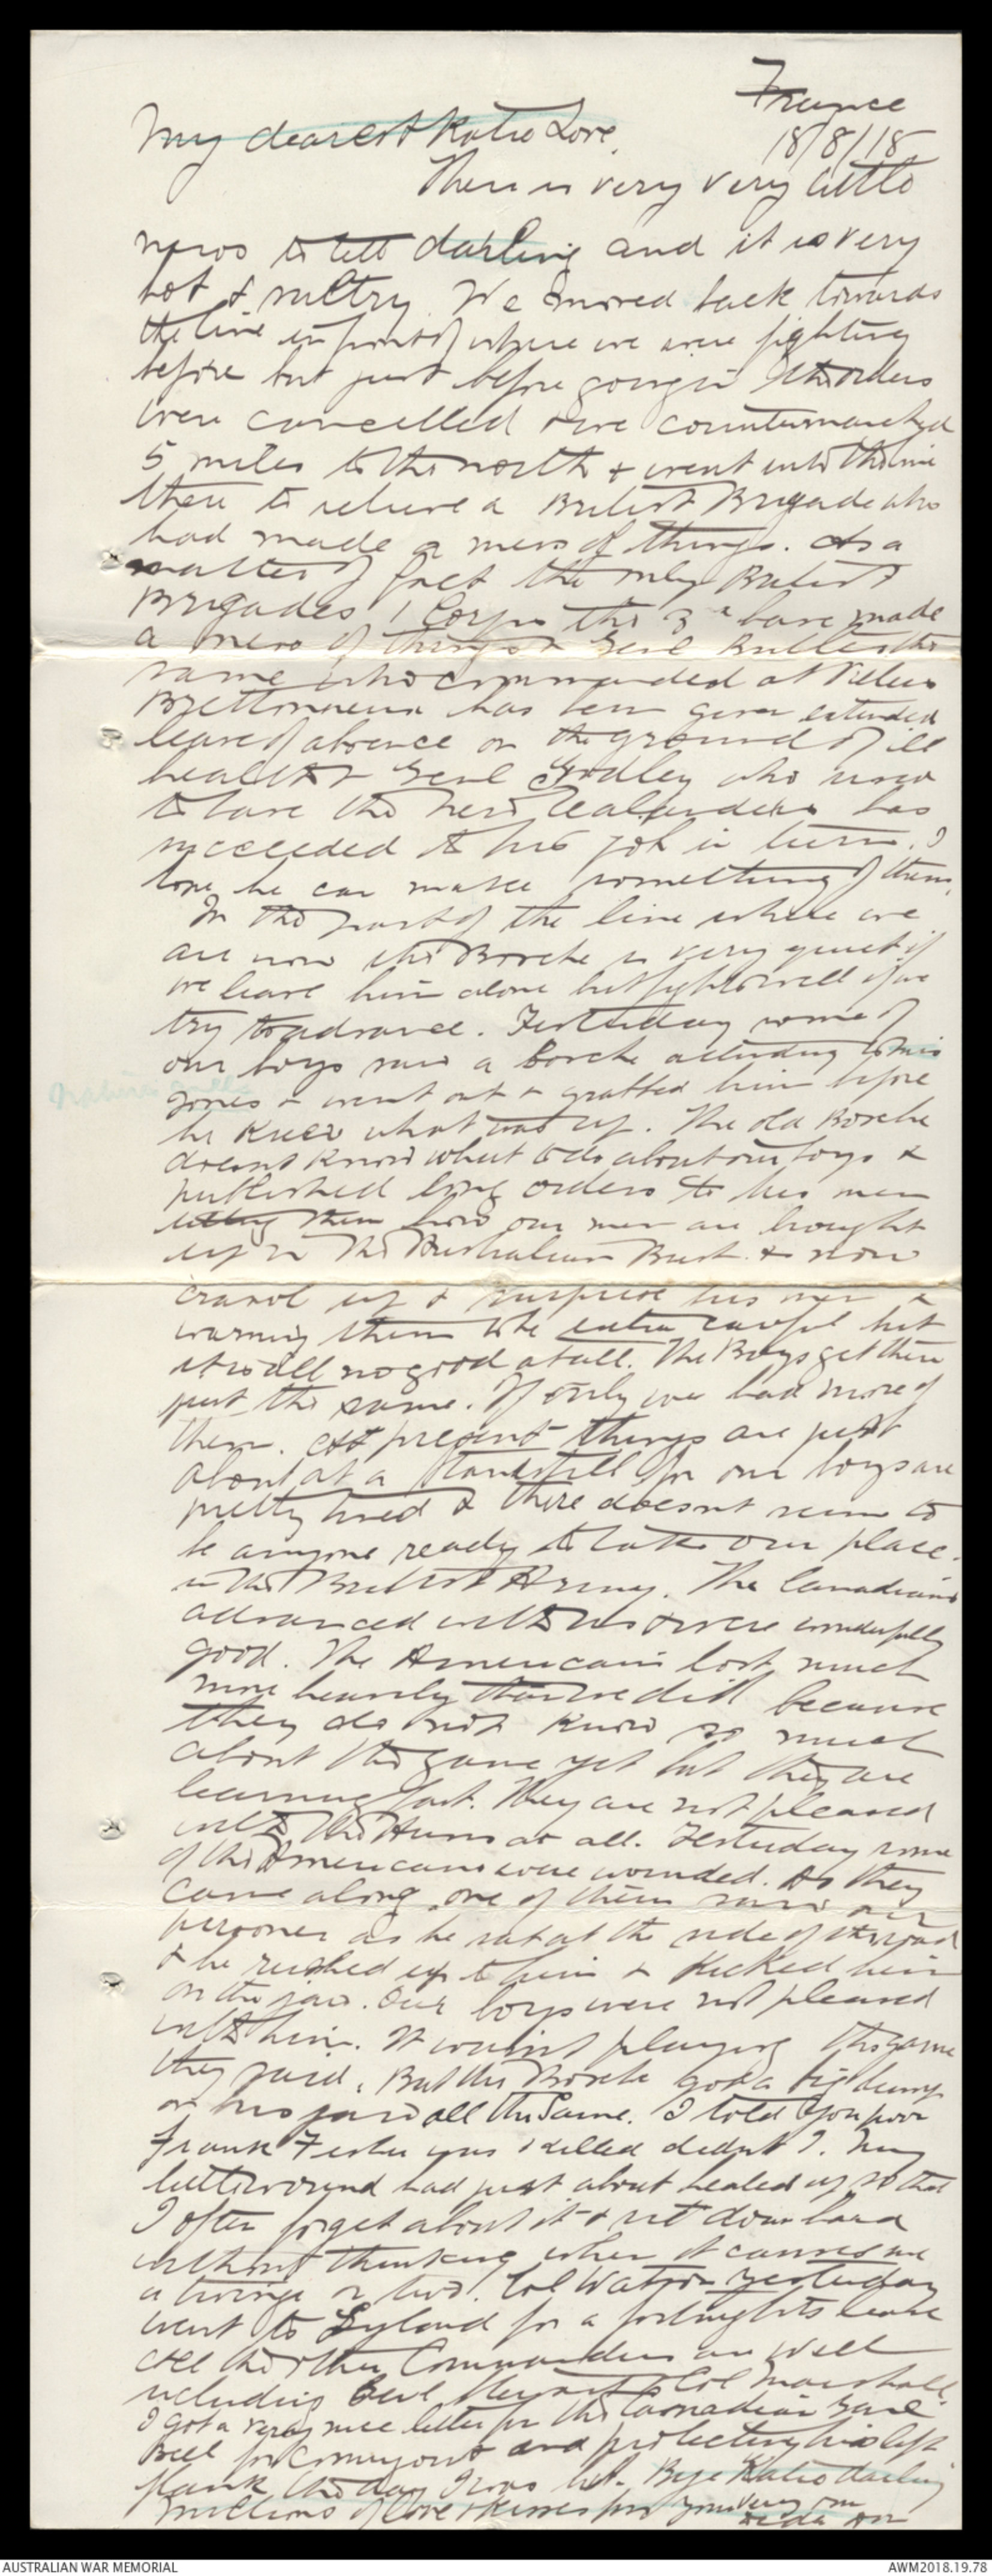 France
18/8/18
My dearest Katie Love,
There is very very little
news to tell darling and it is very
hot & sultry. We moved back towards
the line in front of where we were fighting
before but just before going in the orders
were cancelled & we countermarched
5 miles to the north & went into the line
there to relieve a British Brigade who
had made a mess of things. As a
matter of fact the only British
Brigades / Corps the 3rd have made
a mess of things & Genl Butler the
same who commanded at Villers
Bretonneux has been given extended
leave of absence on the ground of ill
health & Genl Godley who used
to have the New Zealanders has
succeeded to his job in turn. I
hope he can make something of them.
In the part of the line where we
are now the Boche is very quiet if
we leave him alone but fights well if we
try to advance. Yesterday some of
our boys saw a Boche attending to his
Nature's calls
& went out & grabbed him before
he knew what was up. The old Boche
doesnt know what to do about our boys &
published long orders to his men
telling them how our men are brought
up in the Australian Bush & now
crawl up & surprise his men &
warning them to be extra careful but
it is all no good at all. The Boys get them
just the same. If only we had more of
them. At present things are just
about at a standstill for our boys are
pretty tired & there doesnt seem to
be anyone ready to take our place
in the British Army. The Canadians
advanced with us & were wonderfully
good. The Americans lost much
more heavily than we did because
they do not know so much
about the game yet but they are
learning fast. They are not pleased
with the Huns at all. Yesterday some
of the Americans were wounded. As they
came along one of them saw our
prisoner as he sat at the side of the road
& he rushed up to him & kicked him
on the jaw. Our boys were not pleased
with him. It wasn't playing the game
they said. But the Boche got a big bump
on his jaw all the same. I told you poor
Frank was killed didnt I. My
little wound had just about healed up so that
I often forget about it & sit down hard
without thinking when it causes me
a twinge or two. Col Watson yesterday
went to England for a fortnights leave
All the other Commanders are well
including Genl Col Marshall.
I got a very nice letter fr the Canadian Genl
for coming out and protecting his left
flank the day I was hit. Bye Katie darling
millions of love & kisses for you very own